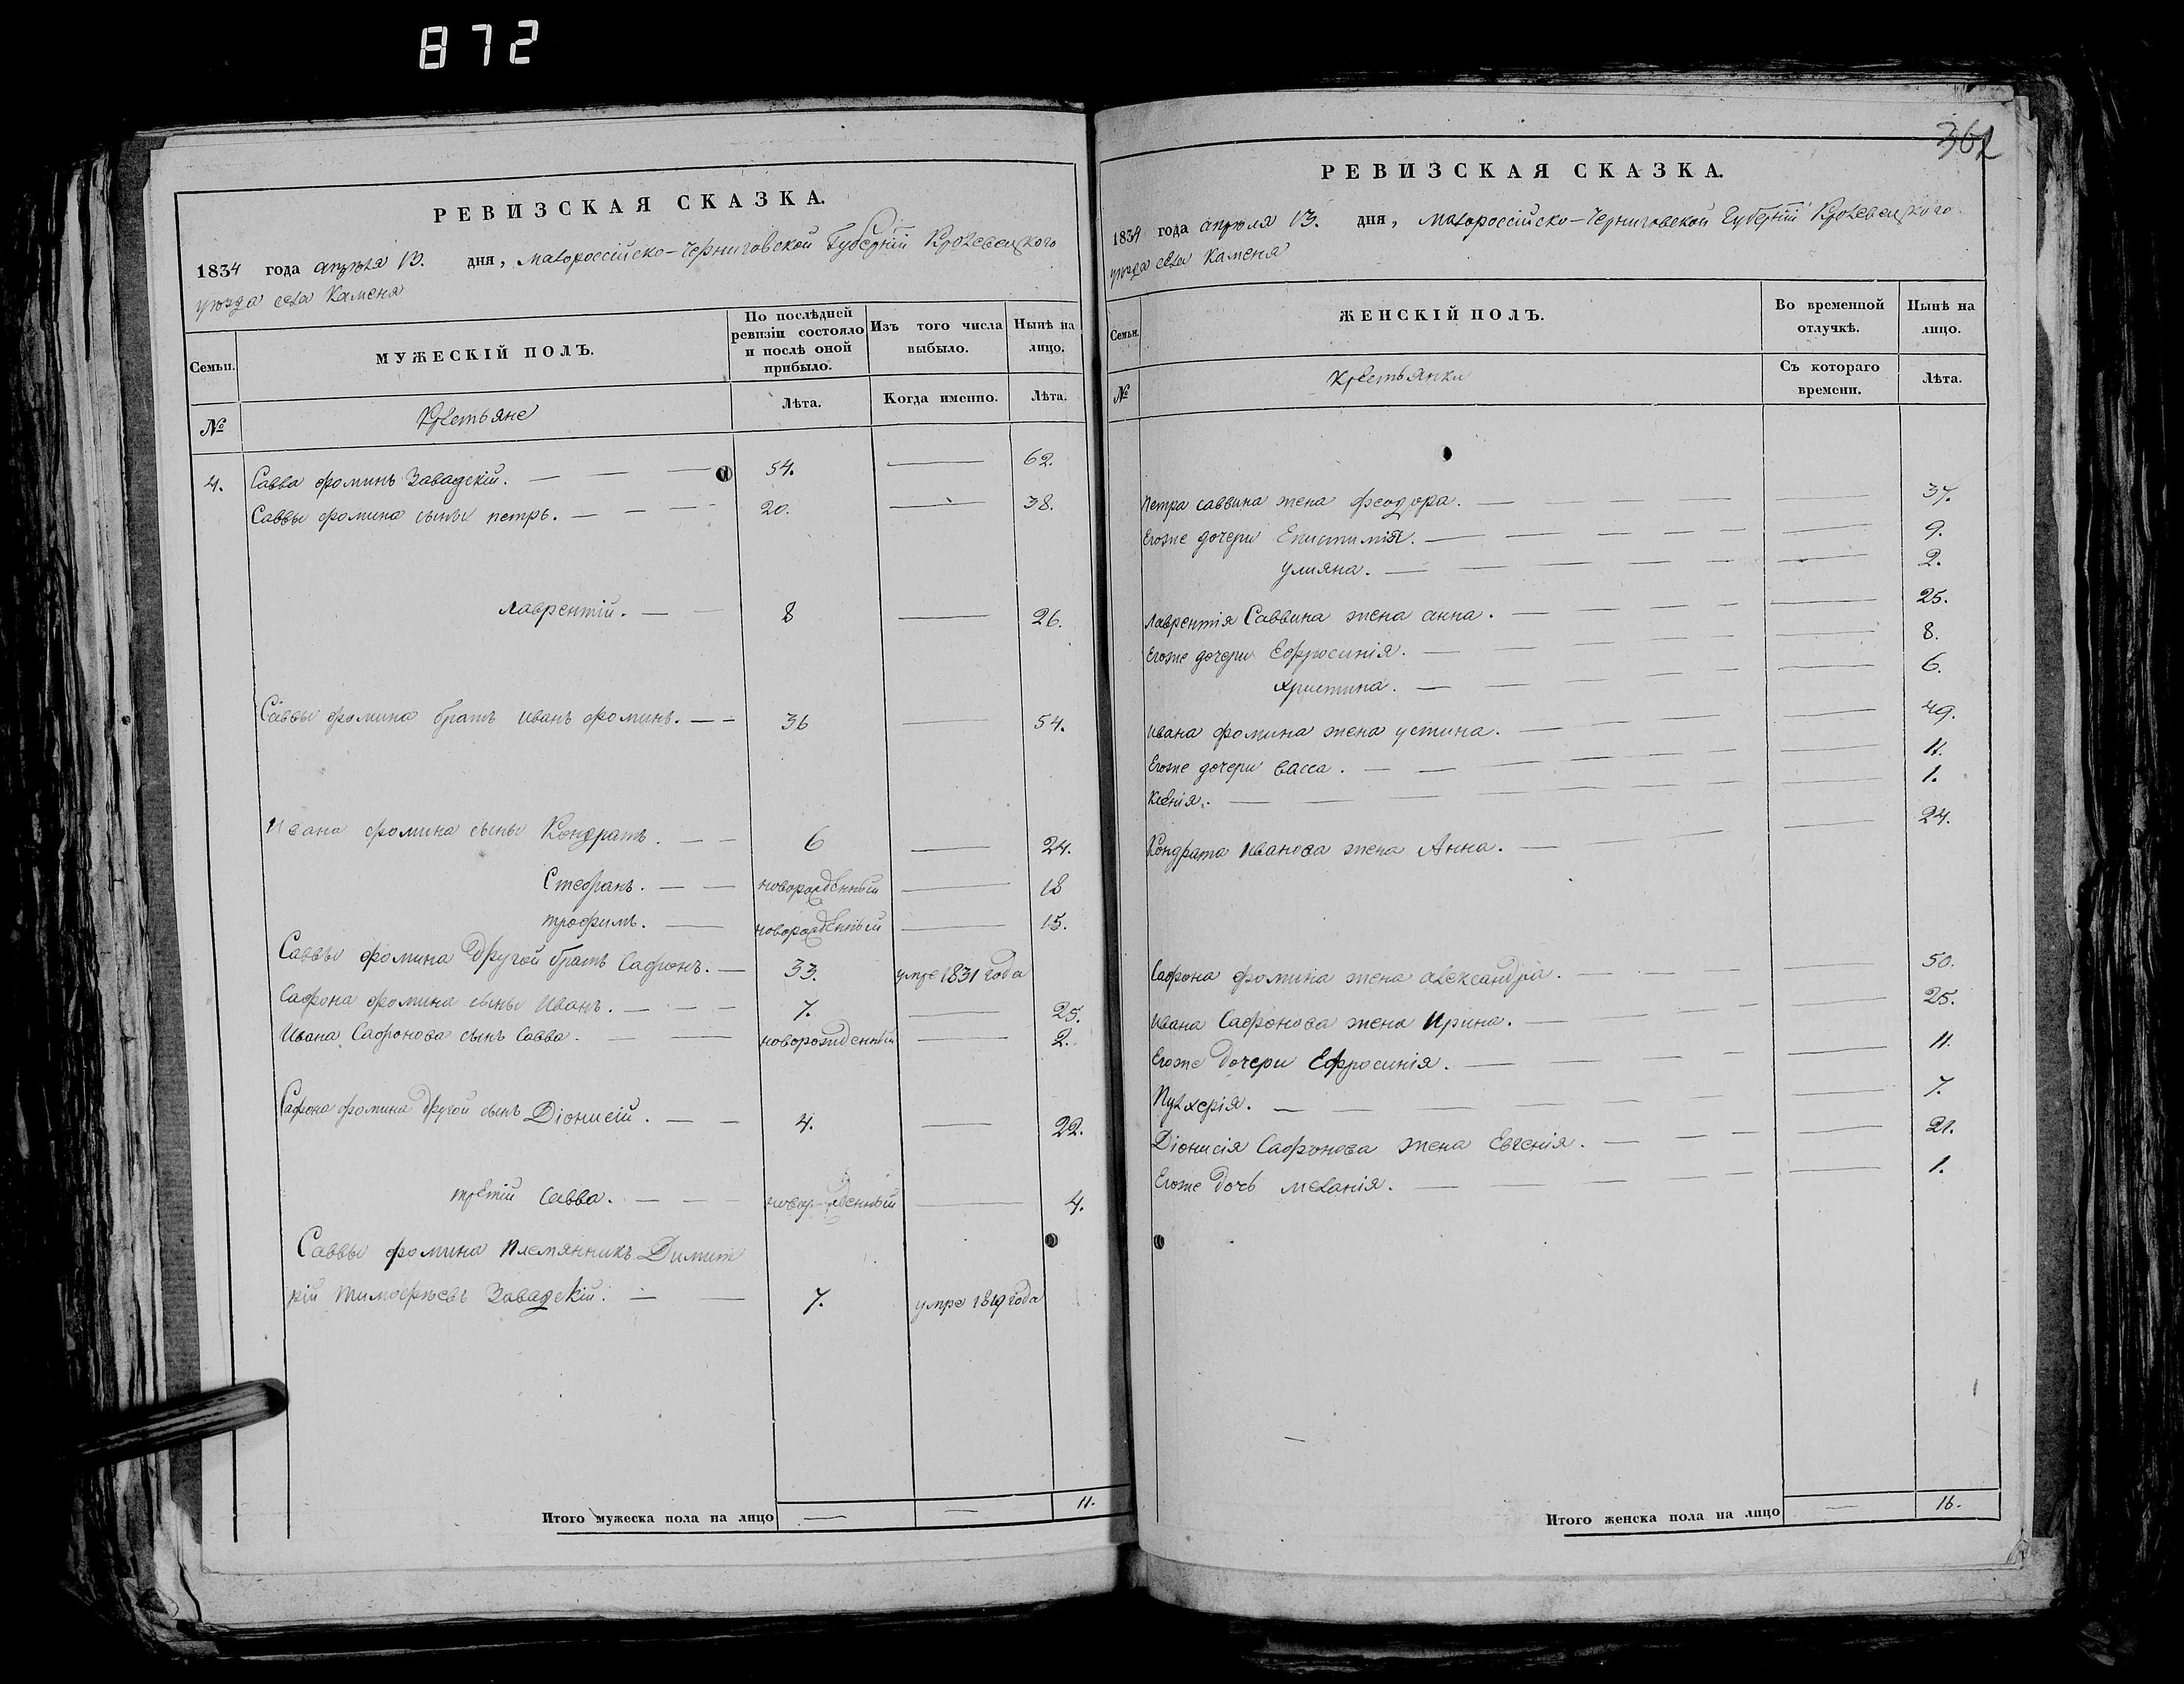 872
РЕВИЗСКАЯ СКАЗКА.
1834 года апреля 13. дня, Малороссійско-Черниговской Губерніи Кролевецкого
уезда села Каменя
Семьи.
МУЖЕСКІЙ ПОЛЪ.
По послѣдней ревизіи состояло и послѣ оной прибыло.
Изъ того числа выбыло.
Нынѣ на лицо.
№
Крестьяне
Лѣта.
Когда именно.
Лѣта.
4. Савва фоминъ Завадскій. — 54. — 62.
Саввы фомина сыны петръ. — 20. — 38.
лаврентій. — 8 — 26.
Саввы фомина братъ иванъ фоминъ. — 36 — 54.
Ивана фомина сыны Кондратъ. — 6 — 24.
Стефанъ. — новорожденный — 18
трофимъ. — новорожденный — 15.
Саввы фомина другой братъ Сафронъ. — 33. умре 1831 года
Сафрона фомина сыны Иванъ. — 7. — 25.
Ивана Сафронова сынъ Савва. — новорожденный — 2.
Сафрона фомина другой сынъ Діонисій. — 4. — 22.
третій Савва. — новорожденный — 4.
Саввы фомина племянникъ Димит
рій тимофѣевъ Завадскій. — 7. умре 1819 года
Итого мужеска пола на лицо — — 11.
362
РЕВИЗСКАЯ СКАЗКА.
1834 года апреля 13. дня, Малороссійско-Черниговской Губерніи Кролевецкого
уезда села Каменя
Семьи.
ЖЕНСКІЙ ПОЛЪ.
Во временной отлучкѣ.
Нынѣ на лицо.
№
Крестьянки
Съ котораго времени.
Лѣта.
петра саввина жена феодора. — 37.
Егоже дочери Епистимія. — 9.
улияна. — 2.
лаврентія Саввина жена анна. — 25.
Егоже дочери Ефросинія. — 8.
христина. — 6.
ивана фомина жена устина. — 49.
Егоже дочери васса. — 11.
Ксенія. — 1.
Кондрата Иванова жена Анна. — 24.
Сафрона фомина жена александра. — 50.
ивана Сафронова жена Ирина. — 25.
Егоже дочери Ефросинія. — 11.
Пулхерія. — 7.
Діонисія Сафронова жена Евгенія. — 21.
Егоже дочь меланія. — 1.
Итого женска пола на лицо — 16.